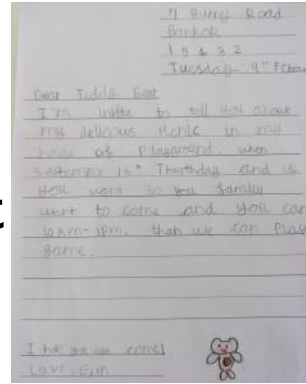 7 Bunny Road
Bankok
1 5 4 3 2
Tuesday 9th
Dear Teddy Bear
I'm invite to tell you about
my delicous Picnic in my
house of Playground. when
18th and if
you want to you family
want to come and you can
10am-1pm. than we can Play
game.
I you can come!
Love, Erin